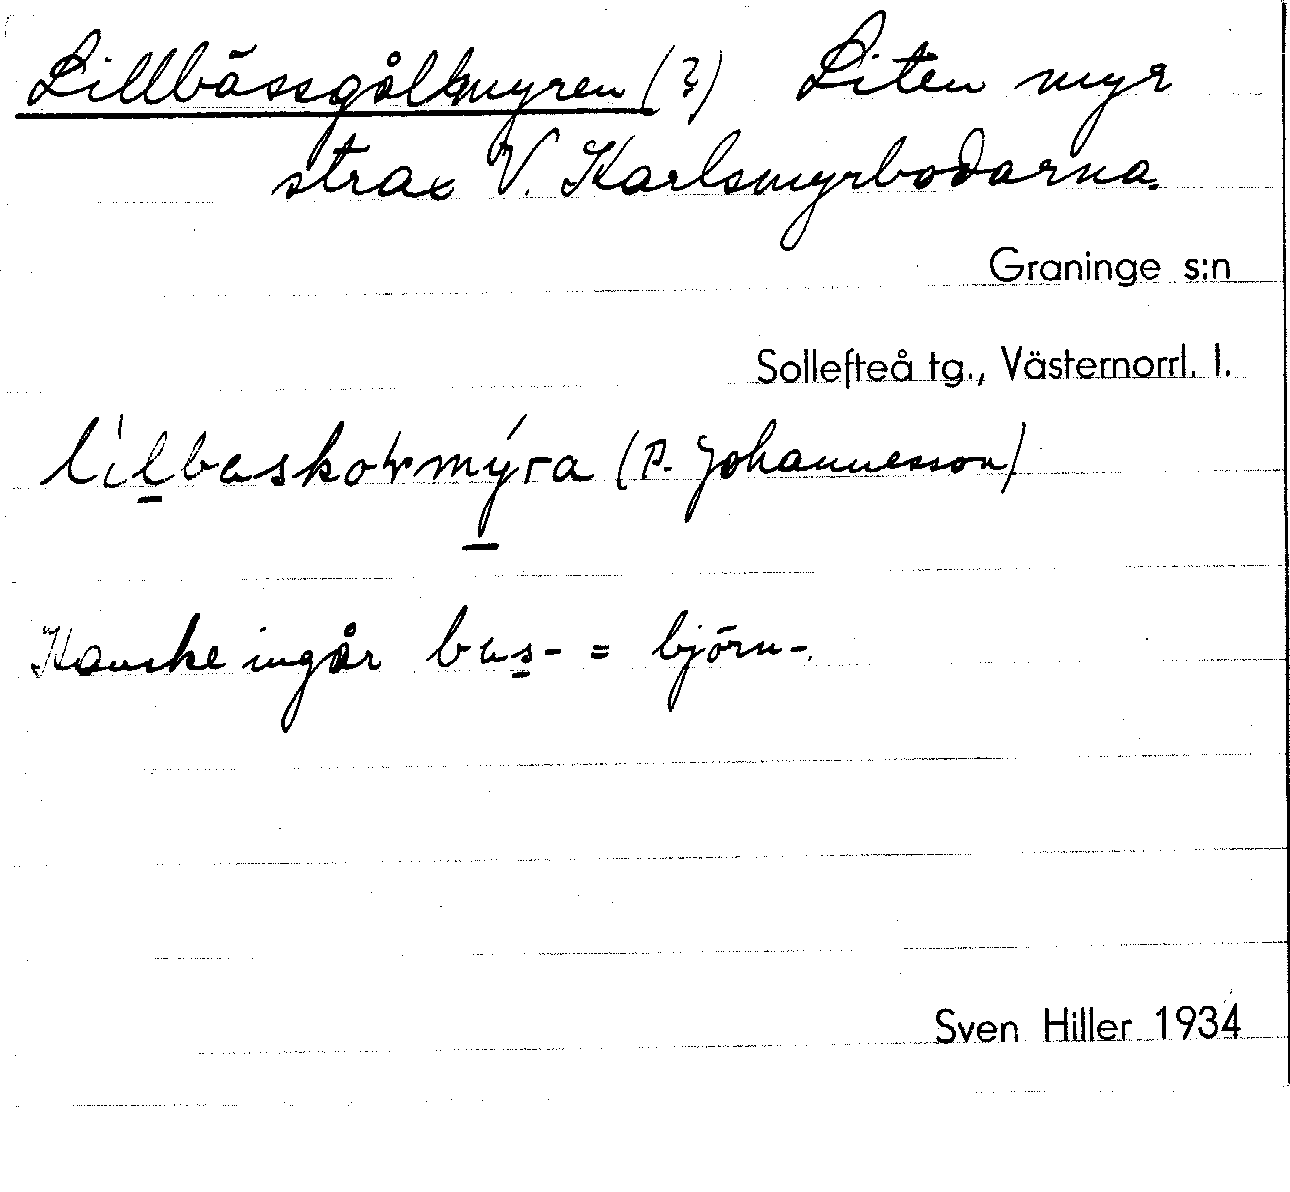 Lillbässgålkmyren (?) Liten myr
strax V. Karlsmyrbodarna.
Graninge s:n
Sollefteå tg., Västernorrl. l.
(P. Johannesson)
Kanske ingår bas- = björn-.
Sven Hiller 1934